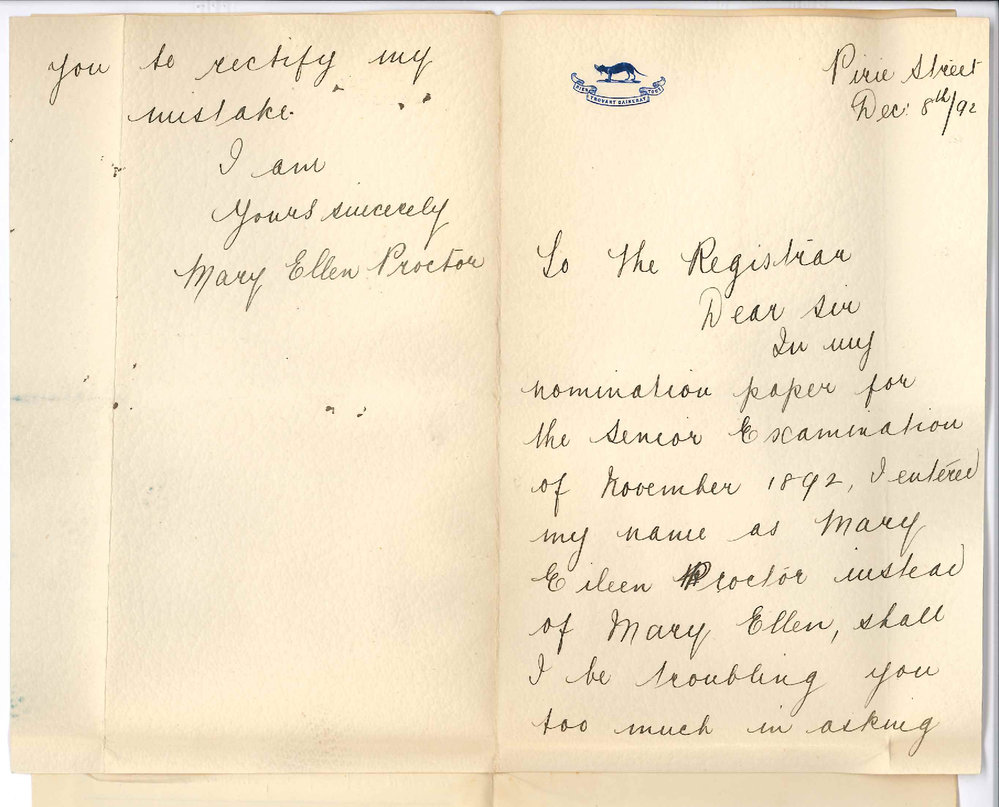 Pirie Street
Dec: 8th/92
To the Registrar
Dear sir
In my
nomination paper for
the Senior Examination
of November 1892, I entered
my name as Mary
Eileen Proctor instead
of Mary Ellen, shall
I be troubling you
too much in asking
you to rectify my
mistake.
I am
Yours sincerely
Mary Ellen Proctor